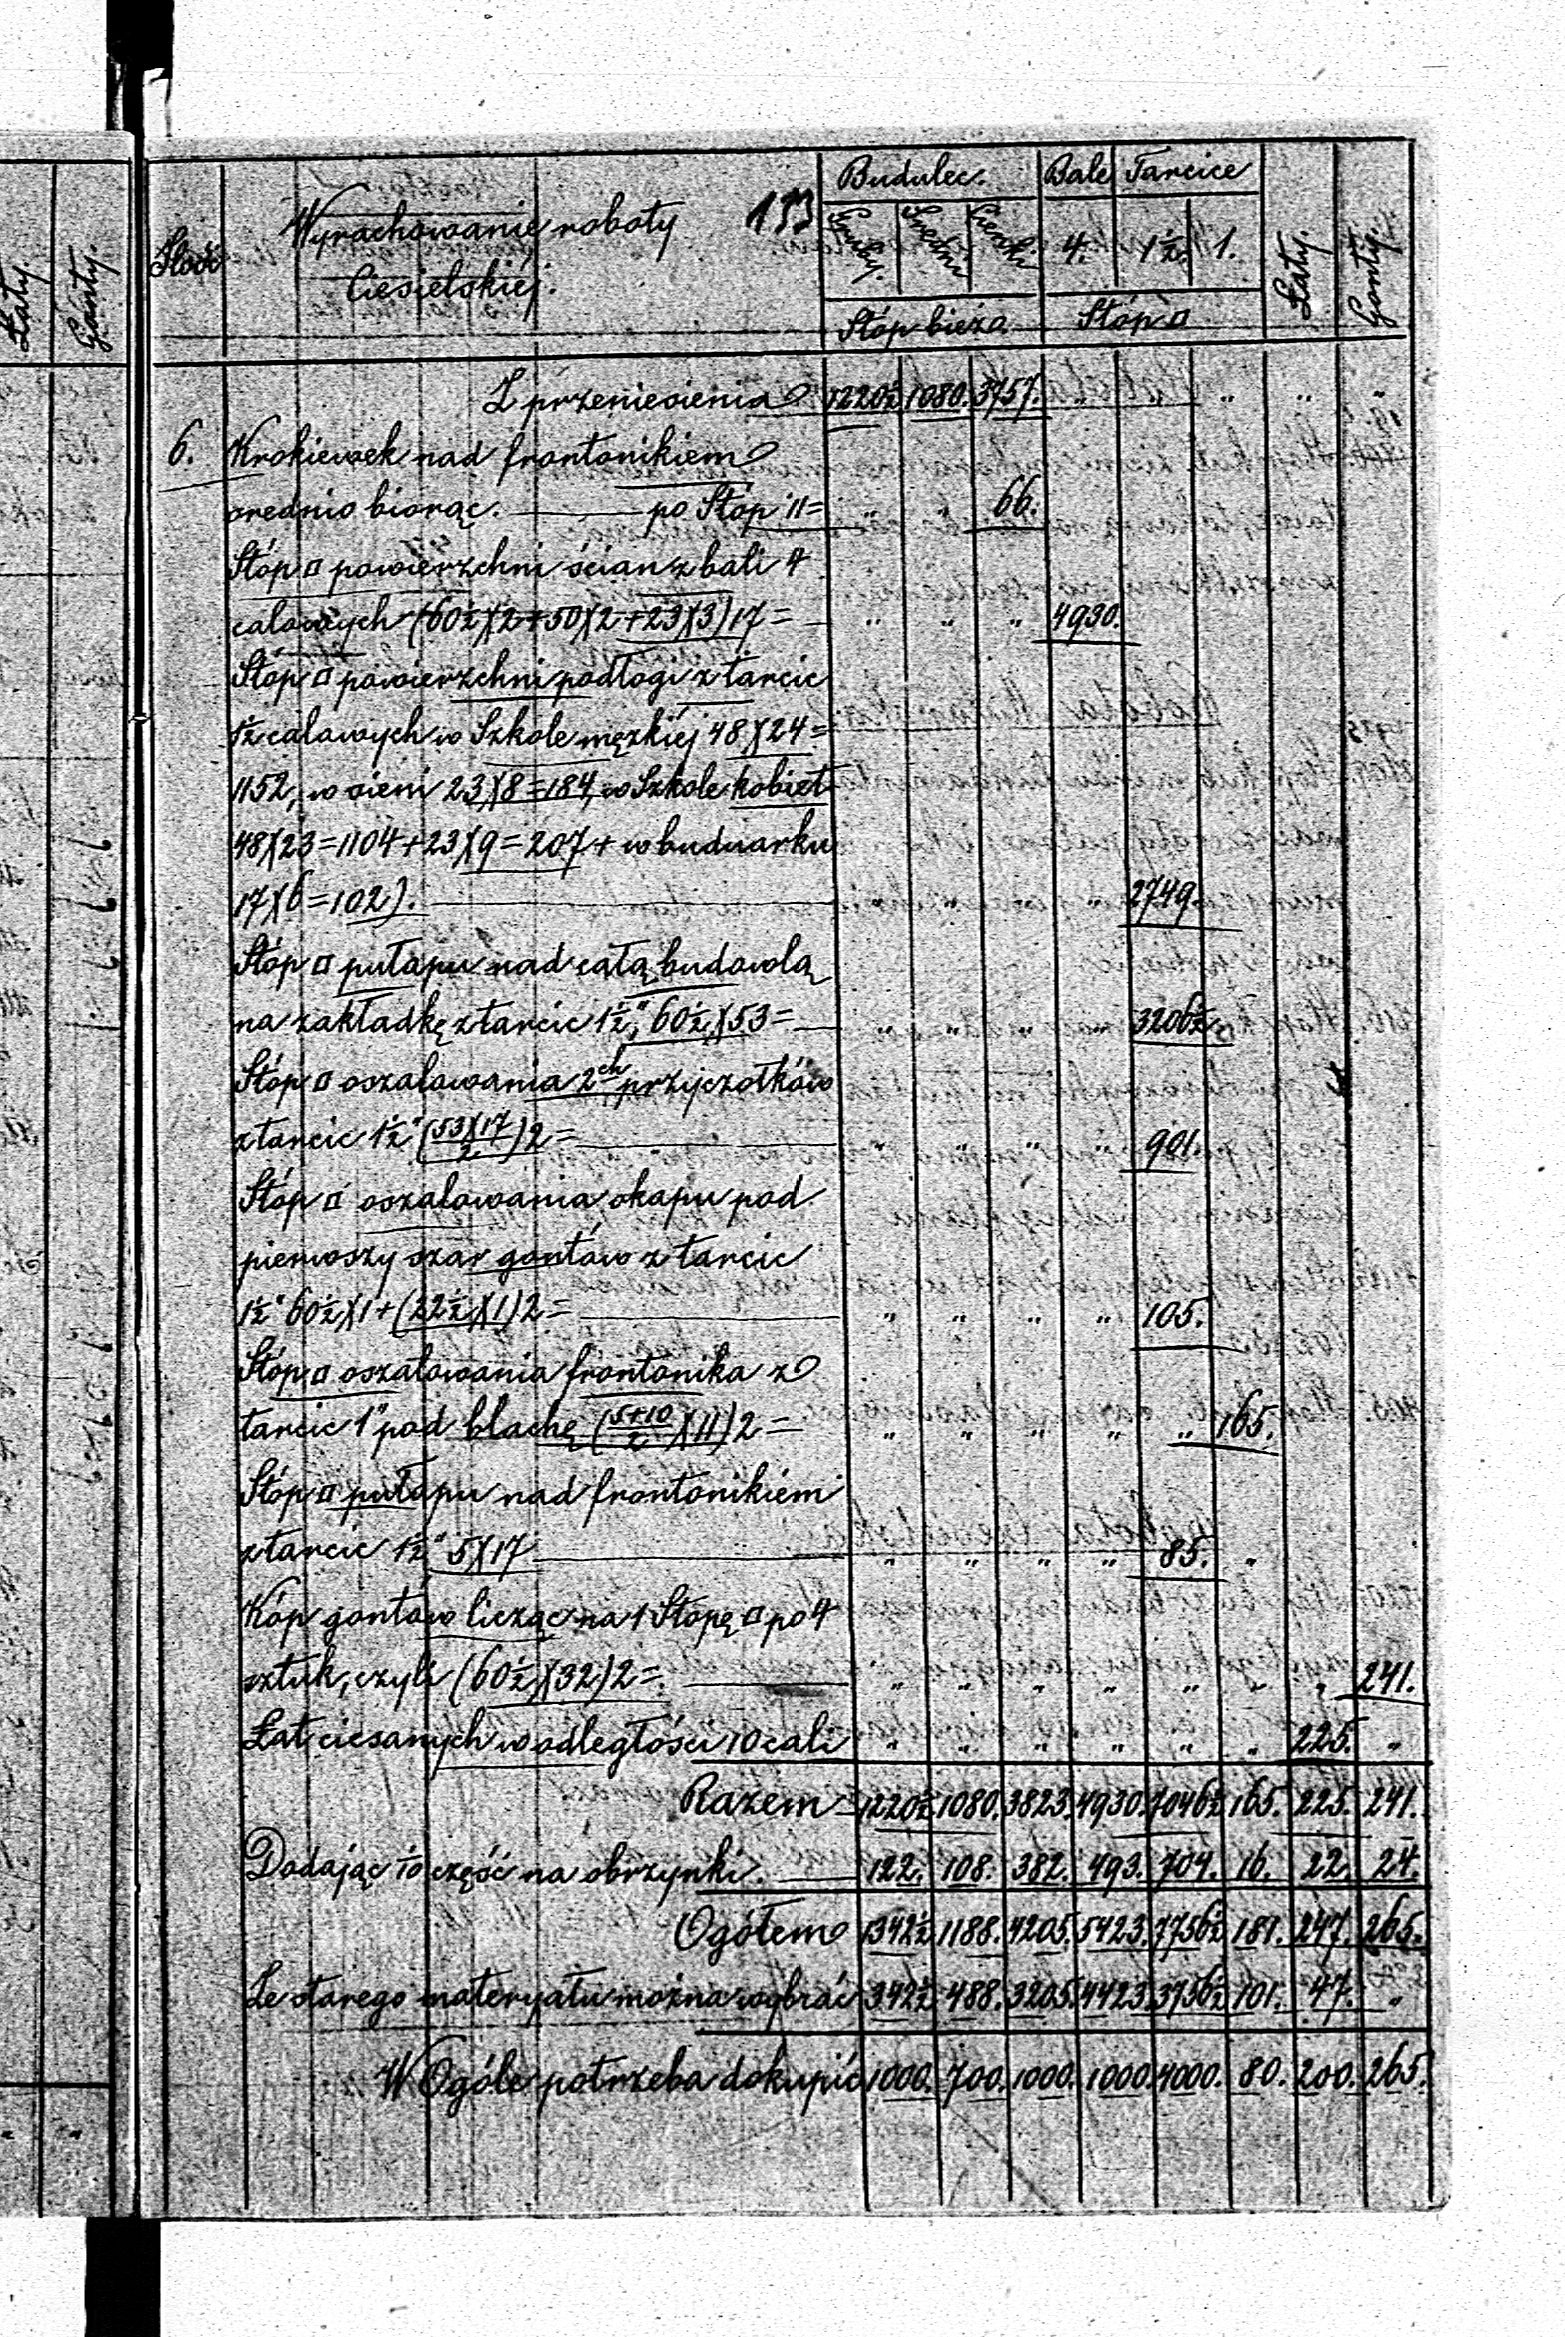 Łaty. Gonty.
Ilość Wyrachowanie roboty 133 Budulec. Bale Tarcice Łaty. Gonty.
Ciesielskiéj. Gruby. Średni Cienki 4. 1½. 1.
Stóp bieża Stóp □
Z przeniesienia 1220½ 1080. 3757. " " " " "
6. Krokiewek nad frontonikiem
srednio biorąc. po Stóp 11= " " 66.
Stóp □ powierzchni ścian z bali 4
calowych (60½)(2+50)(2+23)(3)17= " " " 4930.
Stóp □ powierzchni podłogi z tarcic
1½ calowych w Szkole męzkiéj 48)(24=
1152, w sieni 23)(8=184, w Szkole kobiet
48)(23=1104+23)(9=207+ w buduarku
17)(6=102). " " " " 2749.
Stóp □ pułapu nad całą budowlą
na zakładkę z tarcic 1½" 60½)(53= " " " " 3206½
Stóp □ oszalowania 2ch przyczołków
z tarcic 1½" (53)(17/2)2= " " " " 901.
Stóp □ oszalowania okapu pod
pierwszy szar gontów z tarcic
1½" 60½)(1+(22½)(1)2= " " " " 105.
Stóp □ oszalowania frontonika z
tarcic 1" pod blachę (5+10/2)(11)2= " " " " " 165.
Stóp □ pułapu nad frontonikiém
z tarcic 1½" 5)(17 " " " " 85. "
Kóp gontów licząc na 1 Stopę □ po 4
sztuk, czyli (60½)(32)2=. " " " " " " " 241.
Łat ciesanych w odległości 10 cali " " " " " " 225. "
Razem 1220½ 1080. 3823. 4930. 7046½ 165. 225. 241.
Dodając 1/10 część na obrzynki. 122. 108. 382. 493. 704. 16. 22. 24.
Ogółem 1342½ 1188. 4205. 5423. 7756½ 181. 247. 265.
Ze starego materyału można wybrać 342½ 488. 3205. 4423. 3756½ 101. 47. "
W Ogóle potrzeba dokupić 1000. 700. 1000. 1000. 4000. 80. 200. 265.